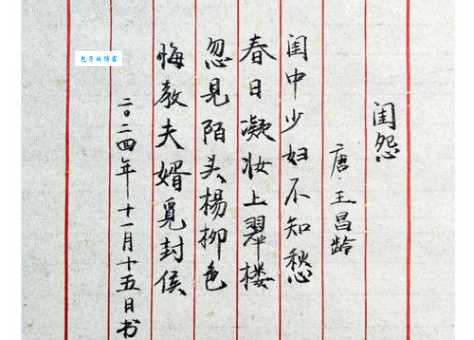 闺怨
唐·王昌龄
闺中少妇不知愁
春日凝妆上翠楼
忽见陌头杨柳色
悔教夫婿觅封侯
二〇二四年十一月十五日书